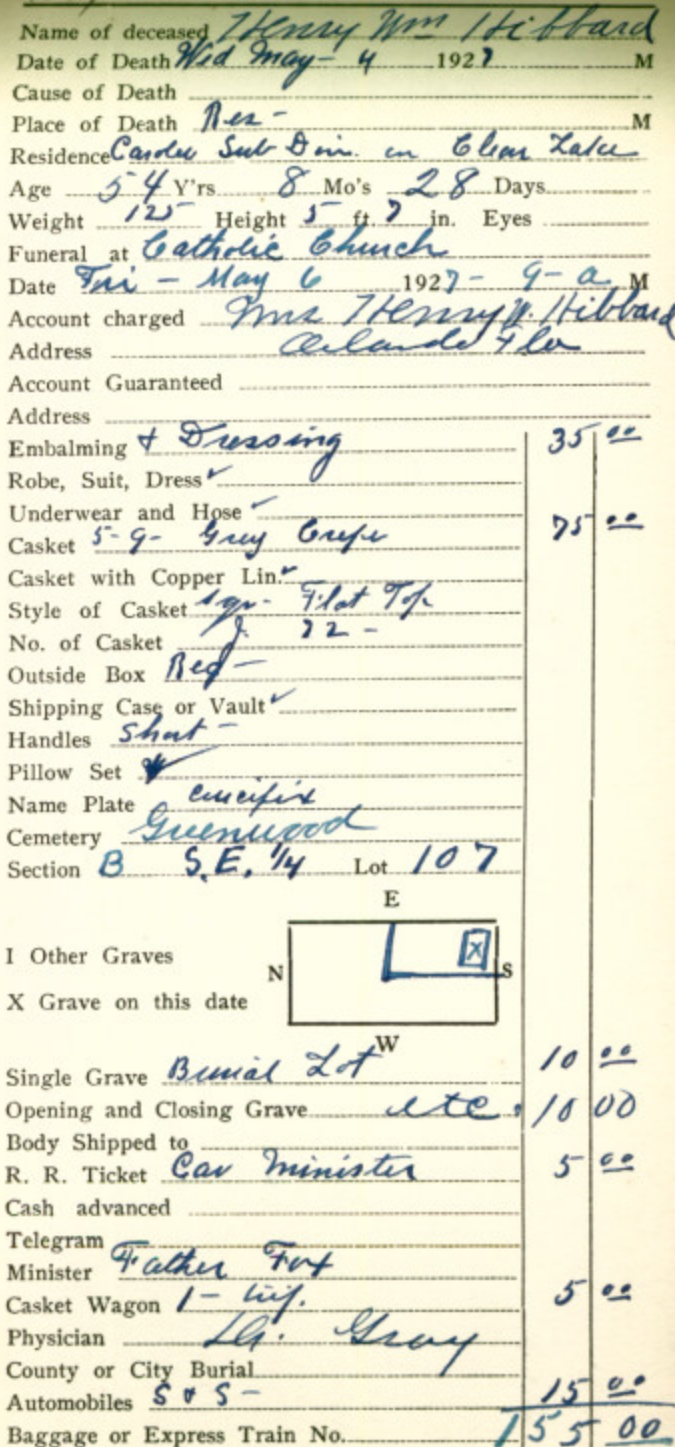 Name of deceased Henry Wm Hibbard
Date of Death Wed May - 4 1927 M
Cause of Death
Place of Death Res - M
Residence Sub Divn. on Clear Lake
Age 54 Y'rs 8 Mo's 28 Days
Weight 125 Height 5 ft. 7 in. Eyes
Funeral at Catholic Church
Date Fri - May 6 1927 - 9 - a M
Account charged Mrs Henry W. Hibbard
Address Orlando Fla
Account Guaranteed
Address
Embalming & Dressing 35 00
Robe, Suit, Dress ✓
Underwear and Hose ✓
Casket 5-9- Grey Crepe 75 00
Casket with Copper Lin. ✓
Style of Casket Sqr- Flat Top
No. of Casket J. 72 -
Outside Box Reg -
Shipping Case or Vault ✓
Handles Short -
Pillow Set ✓
Name Plate crucifix
Cemetery Greenwood
Section B S.E. 1/4 Lot 107
E
I Other Graves
N X S
X Grave on this date
W
Single Grave Burial Lot 10 00
Opening and Closing Grave etc. 10 00
Body Shipped to
R. R. Ticket Car Minister 5 00
Cash advanced
Telegram
Minister Father Fox
Casket Wagon 1- 5 00
Physician Dr. Gray
County or City Burial
Automobiles S & S - 15 00
Baggage or Express Train No. 155 00